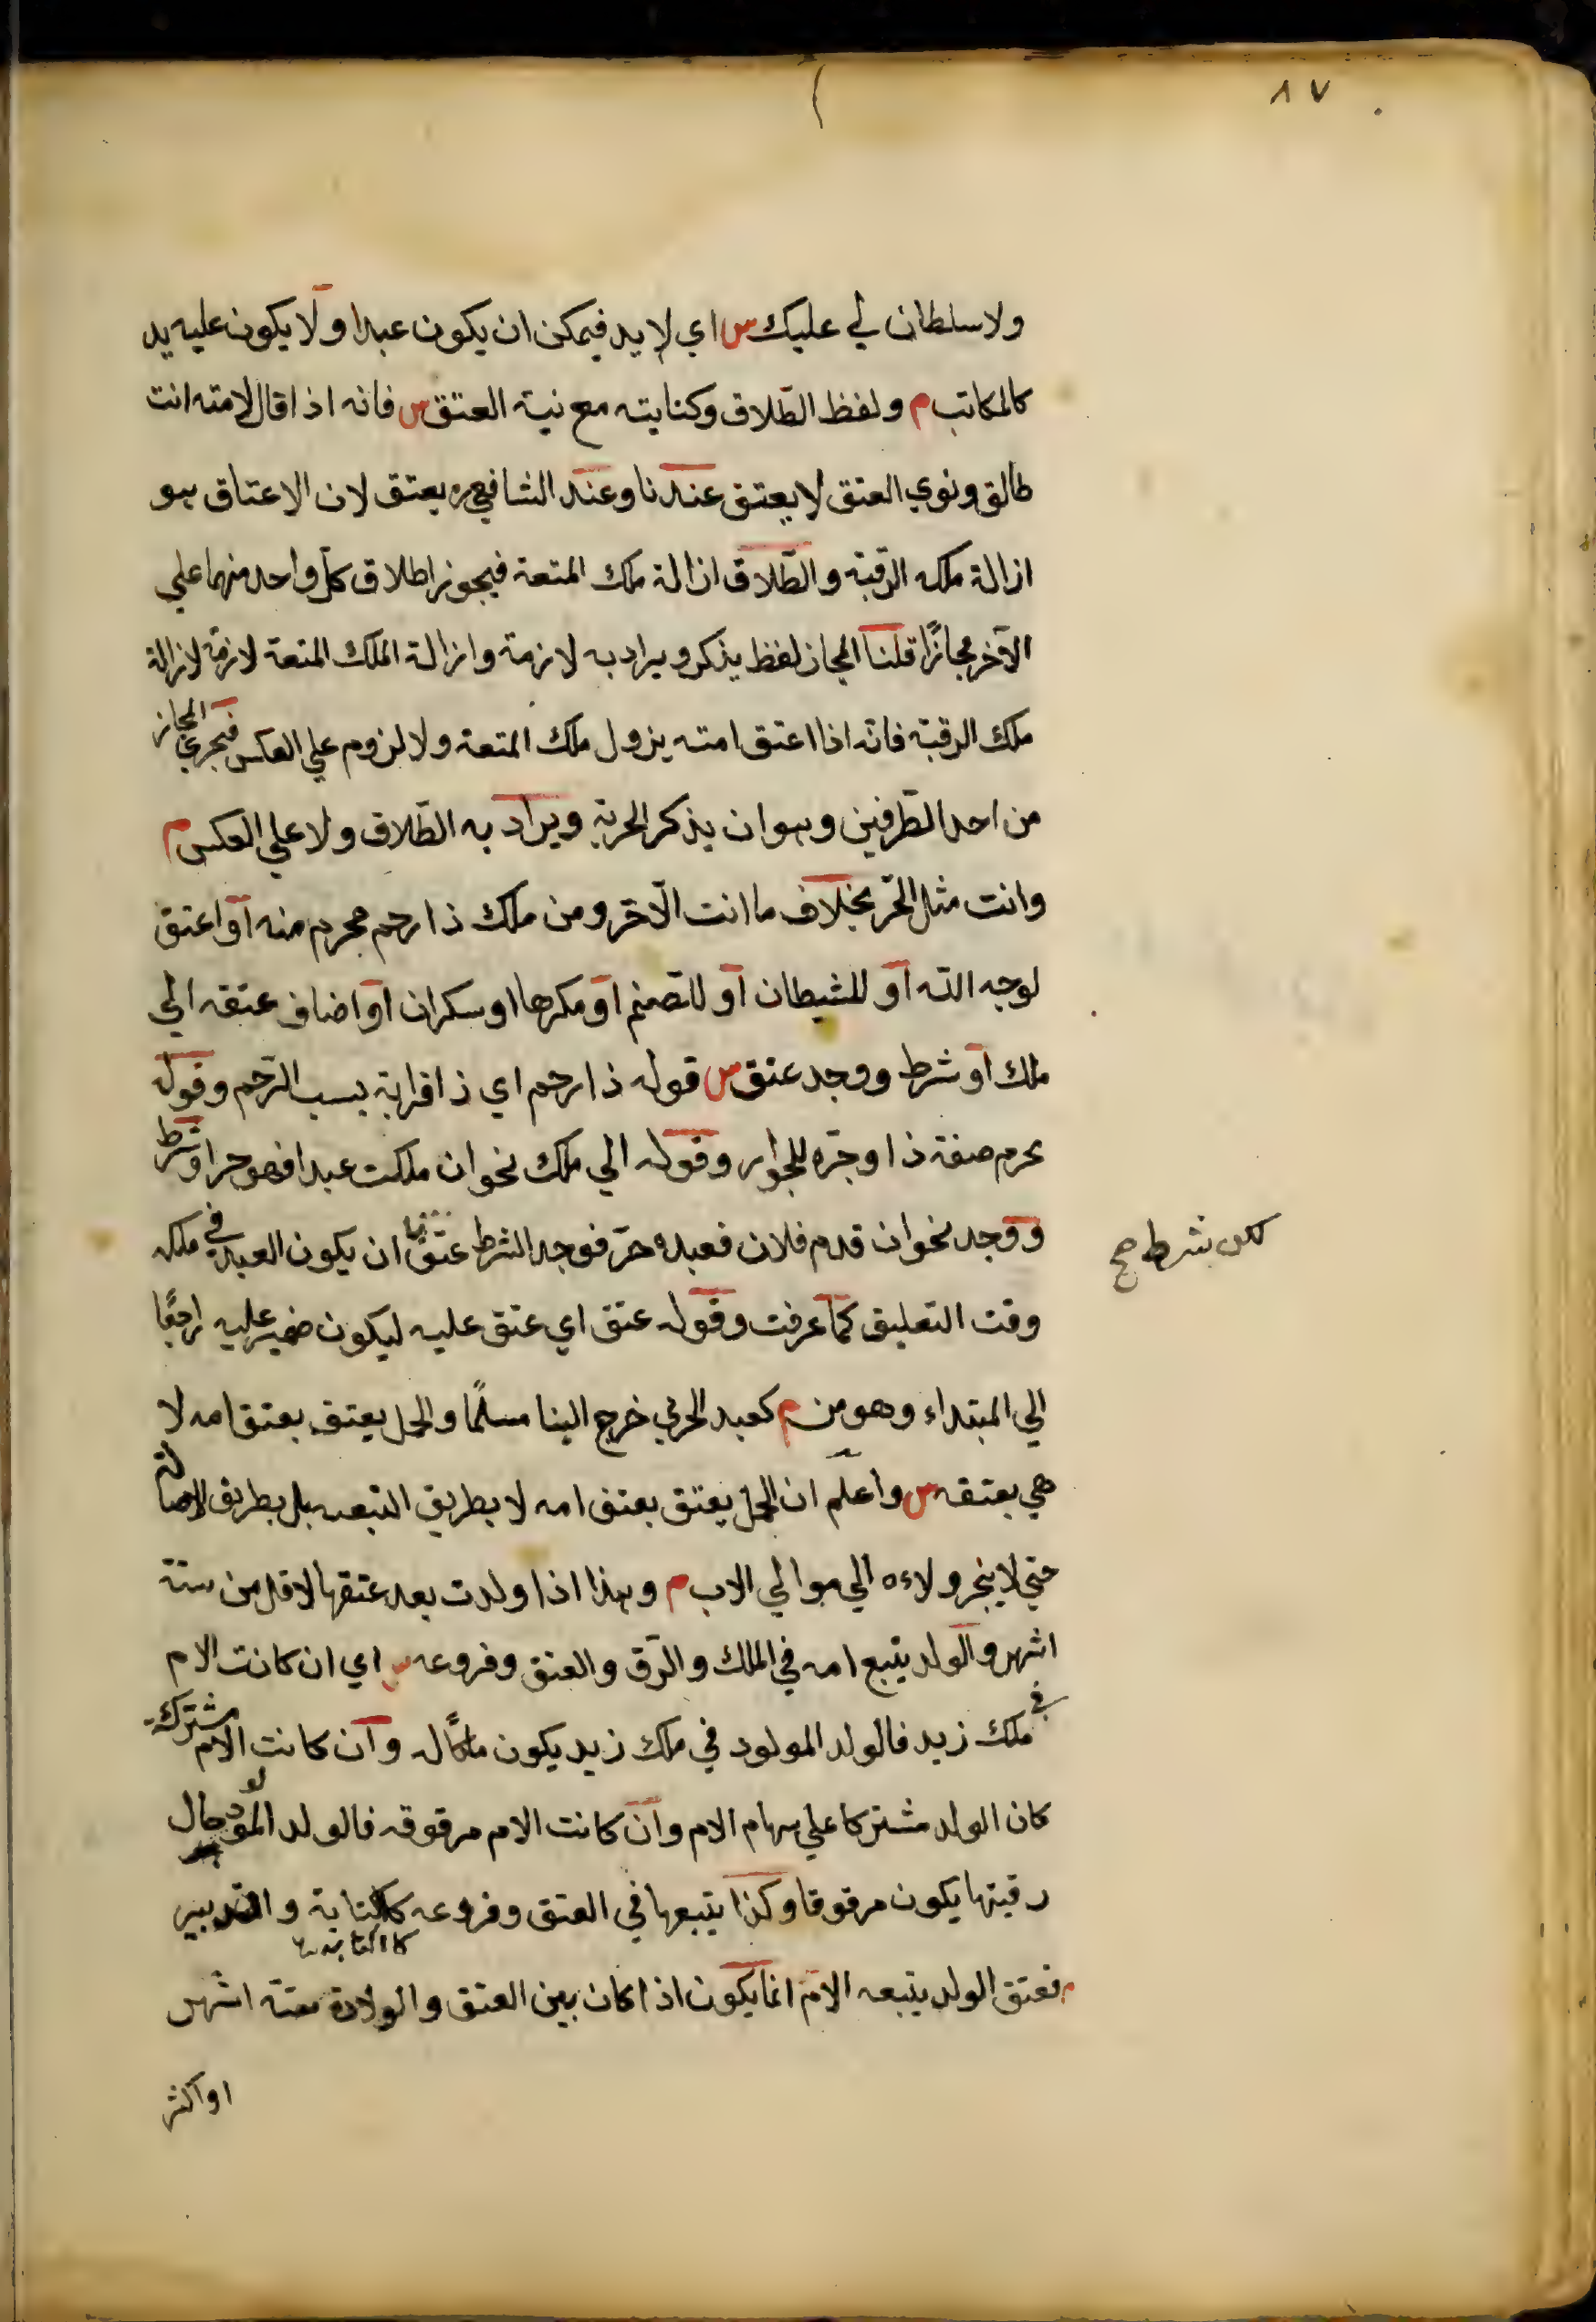 ٨٧
ولا سلطان لي عليك س اي لا يد فيمكن ان يكون عبدا ولا يكون عليه يد
كالمكاتب م ولفظ الطلاق وكنايته مع نية العتق س فانه اذا قال لامته انت
طالق ونوي العتق لا يعتق عندنا وعند الشافعي ره يعتق لان الاعتاق هو
ازالة ملك الرقبة والطلاق ازالة ملك المتعة فيجوز اطلاق كل واحد منهما علي
الآخر مجازًا قلنا المجاز لفظ يذكر ويراد به لازمة وازالة الملك المتعة لازمة لازالة
ملك الرقبة فانه اذا اعتق امته يزول ملك المتعة ولا لزوم علي العكس فيجري المجاز
من احد الطرفين وهو ان يذكر الحرية ويراد به الطلاق ولا علي العكس م
وانت مثل الحر بخلاف ما انت الا حر ومن ملك ذا رحم محرم منه او اعتق
لوجه الله او للشيطان او للصنم او مكرها او سكران او اضاف عتقه الي
ملك او شرط ووجد عتق س قوله ذا رحم اي ذا قرابة بسبب الرحم وقوله
محرم صفة ذا وجره للجوار وقوله الي ملك نحو ان ملكت عبدا فهو حر او شرط
ووجد نحو ان قدم فلان فعبده حر فوجد الشرط عتق ان يكون العبد في ملكه
لكن بشرط صح
وقت التعليق كما عرفت وقوله عتق اي عتق عليه ليكون ضمير عليه راجعًا
الي المبتداء وهو من م كعبد الحربي خرج الينا مسلمًا والحمل يعتق بعتق امه لا
هي بعتقه س واعلم ان الحمل يعتق بعتق امه لا بطريق التبعيه بل بطريق الاصالة
حتي لا ينجر ولاءه الي موالي الاب م وهذا اذا ولدت بعد عتقها لاقل من ستة
اشهر والولد يتبع امه في الملك والرق والعتق وفروعه س اي ان كانت الام
في ملك زيد فالولد المولود في ملك زيد يكون ملكًا له وان كانت الام مشتركة
كان الولد مشتركا علي سهام الام وان كانت الام مرقوقه فالولد المولود حال
رقيتها يكون مرقوقا وكذا يتبعها في العتق وفروعه كالكتابة والتدبير
كالكتابة
م فعتق الولد يتبعه الام انما يكون اذا كان بين العتق والولادة ستة اشهر
او اكثر